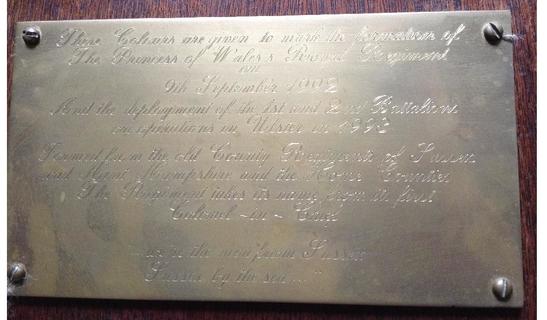 These Colours are given to mark the formation of
The Princess of Wales's Royal Regiment
on
9th September 1992
And the deployment of the 1st and 2nd Battalions
on operations in Ulster in 1993
Formed from the old County Regiments of Sussex
and Kent, Hampshire and the Home Counties
The Regiment takes its name from its first
Colonel-in-Chief
the men from Sussex
Sussex by the sea ..."